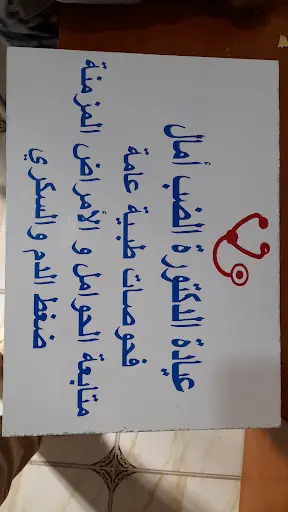 عيادة الدكتورة الضب أمال
فحوصات طبية عامة
متابعة الحوامل و الأمراض المزمنة
ضغط الدم والسكري